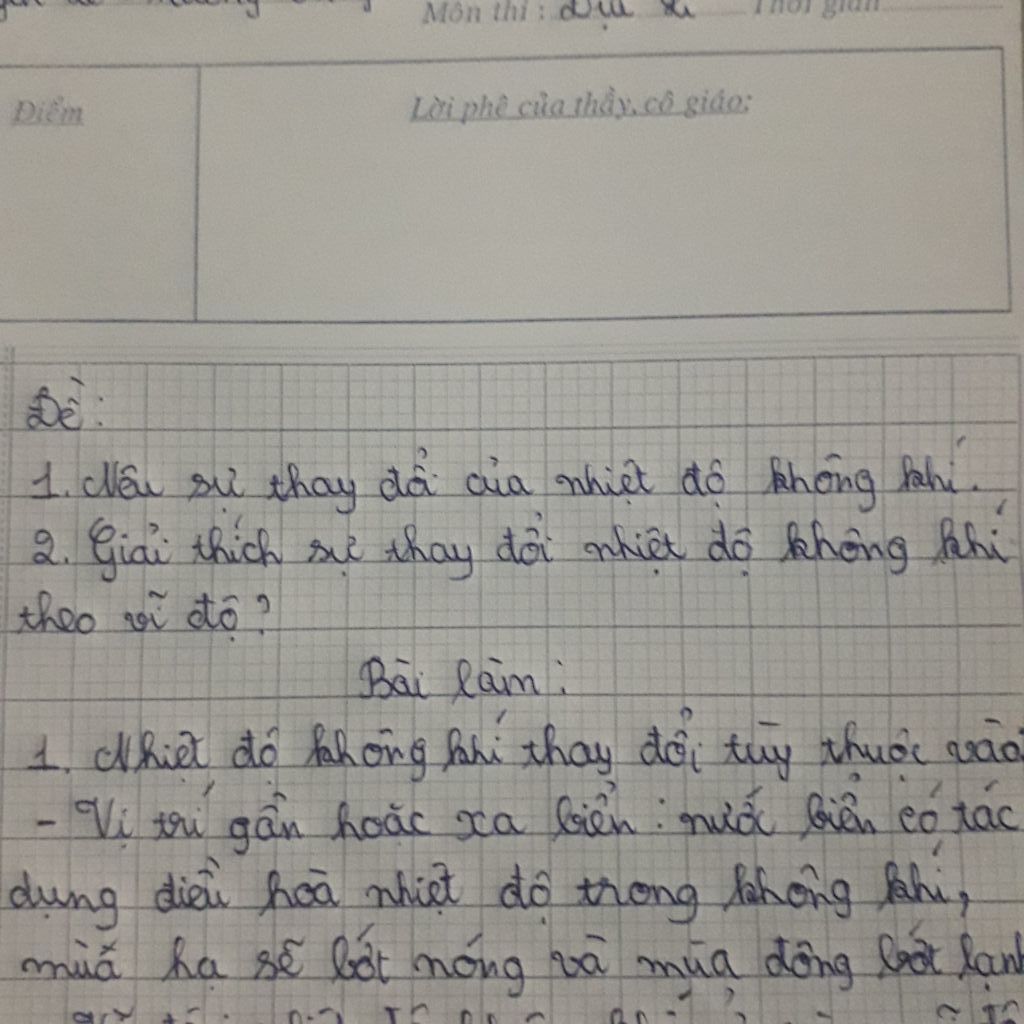 Môn thi : Địa lí Thời gian
Điểm
Lời phê của thầy, cô giáo:
Đề:
1. Nêu sự thay đổi của nhiệt độ không khí.
2. Giải thích sự thay đổi nhiệt độ không khí
theo vĩ độ?
Bài làm:
1. Nhiệt độ không khí thay đổi tùy thuộc vào
- Vị trí gần hoặc xa biển : nước biển có tác
dụng điều hoà nhiệt độ trong không khí,
mùa hạ sẽ bớt nóng và mùa đông bớt lạnh